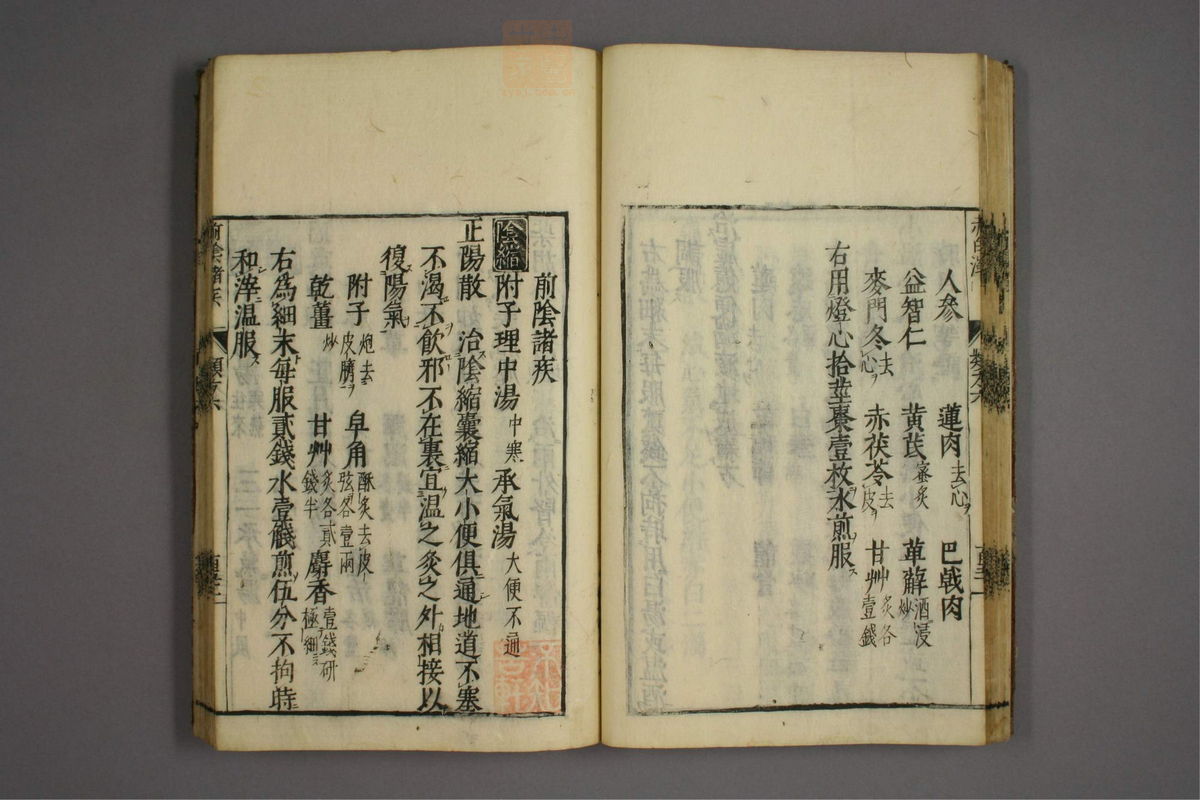 人參　蓮肉去心　巴戟肉
益智仁　黃芪蜜炙　萆薢酒浸炒
麥門冬去心　赤茯苓去皮　甘艸炙各壹錢
右用燈心拾莖棗壹枚水煎服
前陰諸疾
陰縮　附子理中湯中寒　承氣湯大便不通
正陽散　治陰縮囊縮大小便俱通地道不塞
不渴不飲邪不在裏宜温之灸之外相接以
復陽氣
附子炮去皮臍　皁角酥炙去皮弦各壹兩
乾薑炒　甘艸炙各貳錢半　麝香壹錢研極細
右為細末每服貳錢水壹盞煎伍分不拘時
和滓温服
前陰諸疾　類六